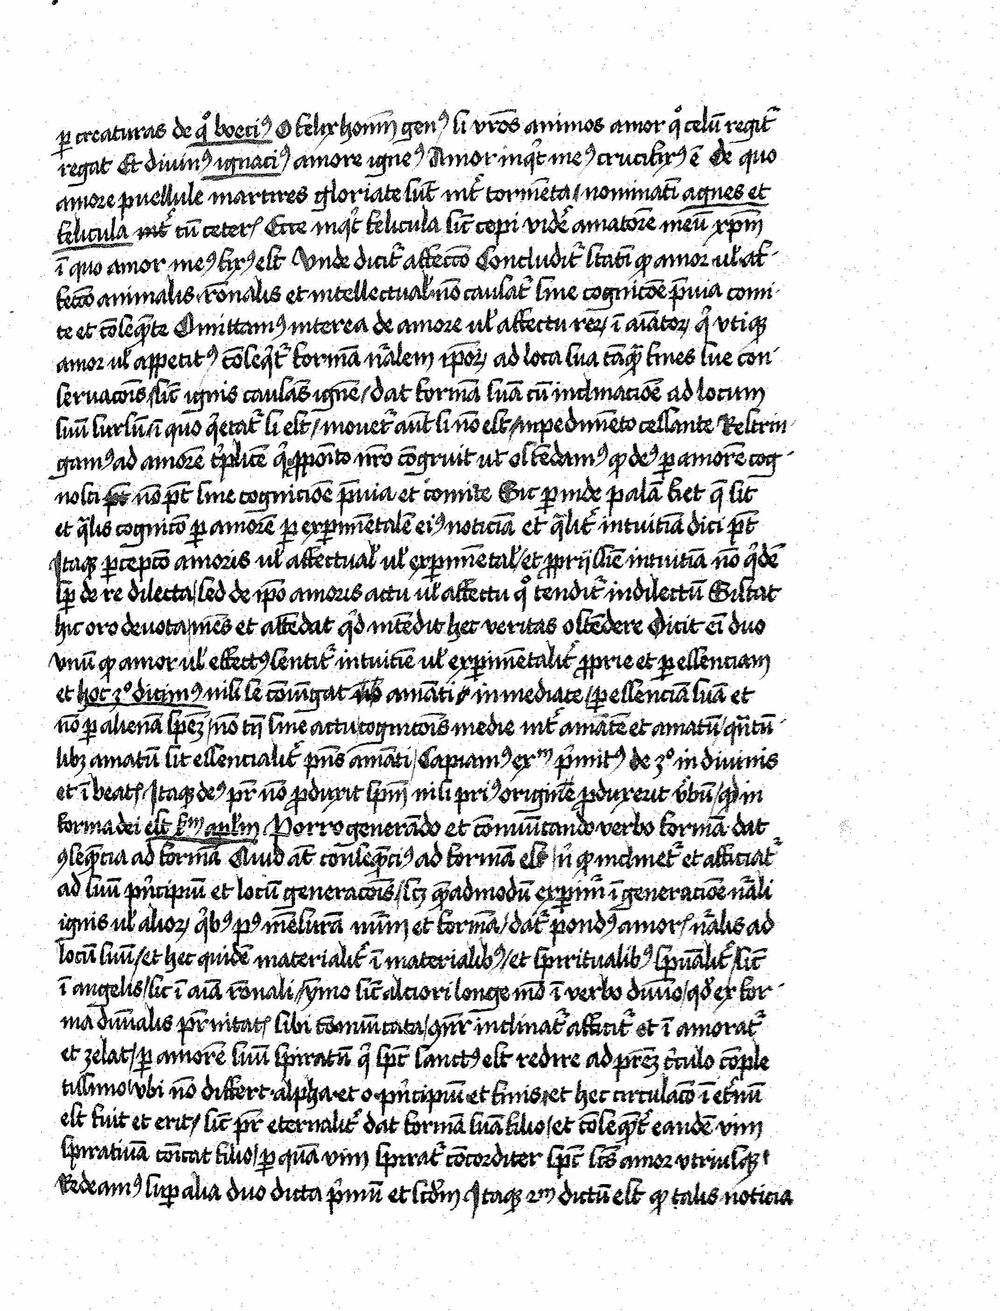 p̄ creaturas de qͦ boeciꝰ O felix homīm genꝰ si vr̄os animos amor qͦ celū regit᷑
regat Et diuinꝰ ignaciꝰ amore igneꝰ Amor inqͥt meꝰ crucifixꝰ ē De quo
amore puellule martires gloriate sūt int᷑ tormēta / nominatī agnes et
felicula cū ceterꝭ Ecce inqͥt felicula sic̄ cepi vide᷑ amatorē meū xp̄m
ī quo amor meꝰ fixꝰ est Vnde dicit᷑ affecc̄o Concludit᷑ statī ꝙ amor ul̄ af-
fecc̄o animalis rōnalis et intellectual̄ nō causat᷑ sine cognicōe p̄uia comi-
te et cōseqn̄te Omittamꝰ interea de amore ul̄ affectu reꝝ ī aīatoꝝ qͥ vtiqꝫ
amor ul̄ appetitꝰ cōseqͥt᷑ formā nr̄alem ip̄oꝝ ad loca sua tāqꝫ fines sue con-
seruacōis / sic̄ ignis causās ignē / dat formā suā cū inclinacōe ad locum
suū sursū / ī quo qͥetat᷑ si est / mouet᷑ aūt si nō est / inpedimēto cessante Restrin-
gamꝰ ad amorē tͥplicē qͥ ꝓpoīto nr̄o cōgruit ut ostēdamꝰ ꝙ deꝰ ꝑ amorē cog-
nosci nō pt̄ sine cognicōe p̄uia et comite Sic ꝑinde palā fiet qͣ sit
et qͣlis cognic̄o ꝑ amorē ꝑ exꝑimētalē eiꝰ noticiā et qͣlit᷑ intuitiā dici pt̄
Itaqꝫ ꝑcepc̄o amoris ul̄ affectual̄ ul̄ exꝑimētal̄ / et ꝓprijssīe intuitiā nō qͥdē
sꝑ de re dilecta / sed de ip̄o amoris actu ul̄ affectu qͦ tendit᷑ in dilectū Sistat
hic oro deuota mēs et attēdat qͥd intēdit hec veritas ostēdere Dicit eī duo
vnū ꝙ amor ul̄ effectꝰ sentit᷑ intuitiue ul̄ exꝑimētalit᷑ ꝓprie et ꝑ essenciam
et hoc 2ͦ dicimꝰ nisi se cōiūgat amāti inmediate / ꝑ essenciā suā et
nō ꝑ alienā spēꝫ / nō tn̄ sine actu cognicōis medie int᷑ amātē et amatū / qn̄tū-
libꝫ amatū sit essencialit᷑ p̄ns amāti / Capiamꝰ exᵐ pͥmitꝰ de 2ͦ in diuinis
et ī beatꝭ Itaqꝫ deꝰ pr̄ nō ꝓduxit sp̄m nisi priꝰ origine ꝓduxerit v̄bū / qd̄ in
forma dei est s̄m apl̄m Porro generādo et cōmūicando verbo formā dat
ꝯseqn̄cia ad formā Quid at̄ conseqn̄ciꝰ ad formā est / nͥ ꝙ inclinet᷑ et afficiat᷑
ad suū pͥncipiū et locū generacōis / scꝫ quēadmodū exꝑim᷑ ī generacōe nr̄ali
ignis ul̄ alioꝝ qͥbꝰ pꝰ mēsurā nūm et formā / dat᷑ pondꝰ amorꝭ nr̄alis ad
locū suū / et hec quidē materialit᷑ ī materialibꝰ / et spiritualibꝰ sp̄ualit᷑ / sic̄
ī angelis / sic ī aīa rōnali / ymo sic̄ alciori longe mō ī verbo diuino / qd̄ ex for-
ma diuīalis pr̄nitatꝭ sibi cōmūicata / ꝯnr̄ inclinat᷑ afficit᷑ et ī amorat᷑
et zelat / ꝑ amorē suū spiratū qͥ spc̄ sanctꝰ est redire ad pr̄eꝫ cͥculo cōple
tissimo / vbi nō differt alpha et o pͥncipiū et finis / et hec circulac̄o ī et᷑nū
est fuit et erit / sic̄ pr̄ eternalit᷑ dat formā suā filio / et cōseqn̄t᷑ eandē vim
spiratiuā cōīcat filio / ꝑ quā vim spirat᷑ cōcorditer spc̄ sc̄s amor vtriusqꝫ
Redeamꝰ suꝑ alia duo dicta pͥmū et scd̄m Itaqꝫ 2ᵐ dictū est ꝙ talis noticia